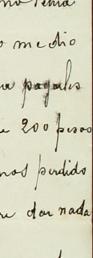 no tenia
o medio
a pagales
e 200 pesos
mos perdido
re dar nada